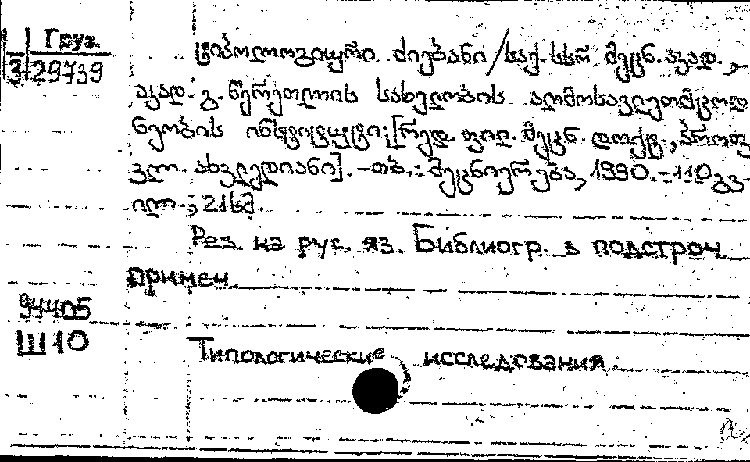 Груз.
3 29739
ტიპოლოგიური ძიებანი / საქ. სსრ მეცნ. აკად.,
აკად. გ. წერეთლის სახელობის აღმოსავლეთმცოდ
ნეობის ინსტიტუტი; [რედ. ფილ. მეცნ. დოქტ., პროფ.
ვლ. ახვლედიანი]. - თბ.: მეცნიერება, 1990. - 110 გვ.
ილ.; 21სმ.
Рез. на рус. яз. Библиогр. в подстроч.
примеч.
94405
Ш10
Типологические исследования.